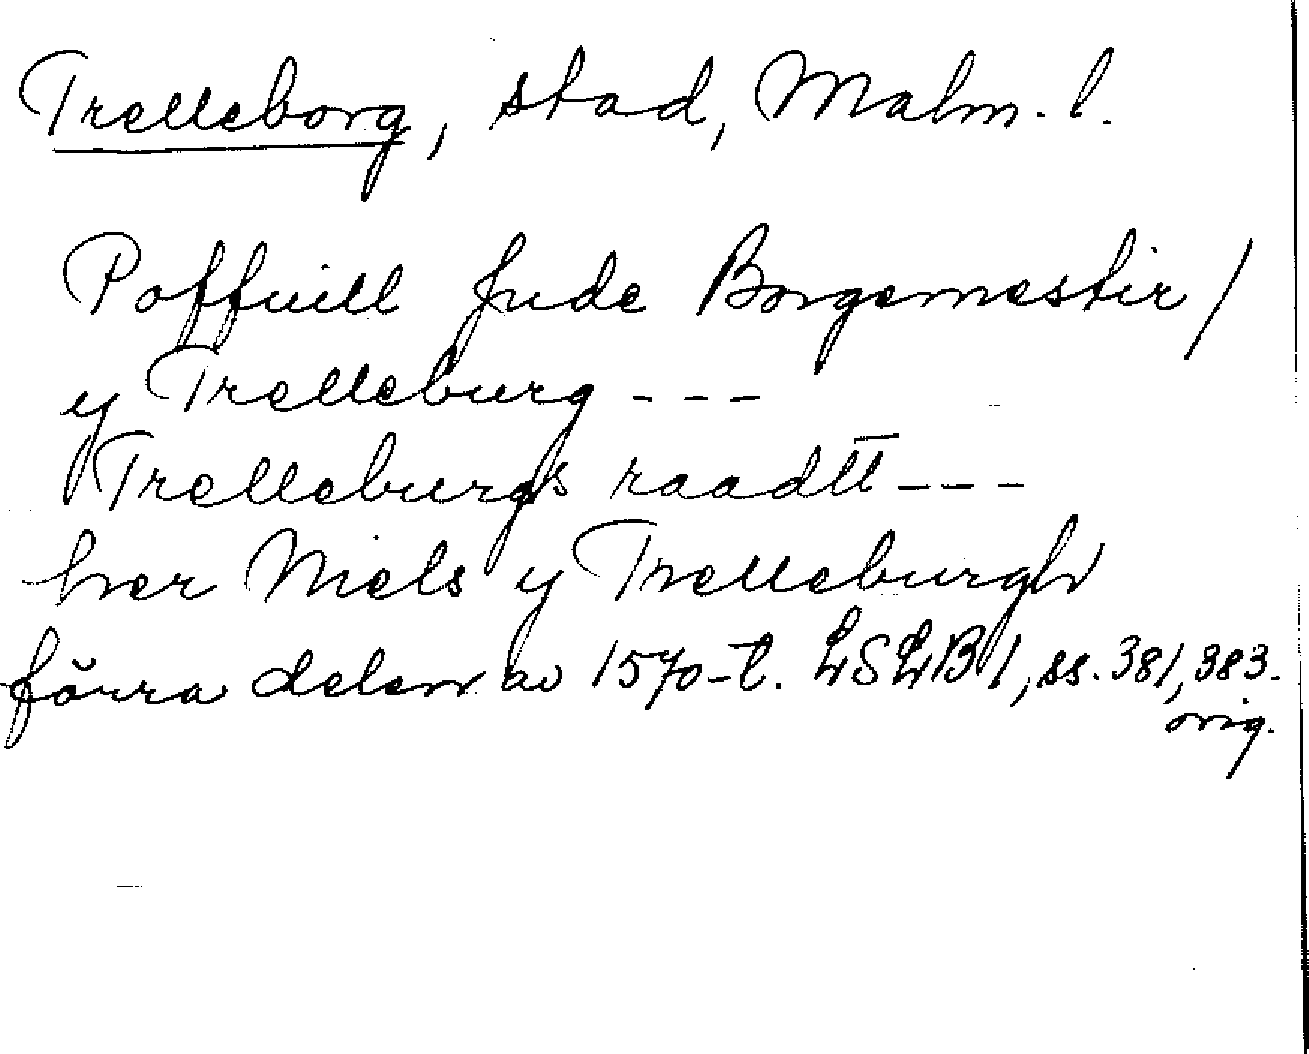 Trelleborg, stad, Malm. l.
Poffuill Jude Borgemestir /
y Trelleburg ---
Trelleburgs raadtt ---
her Niels y Trelleburgh
förra delen av 1570-t. LSLB I, ss. 381, 383.
orig.